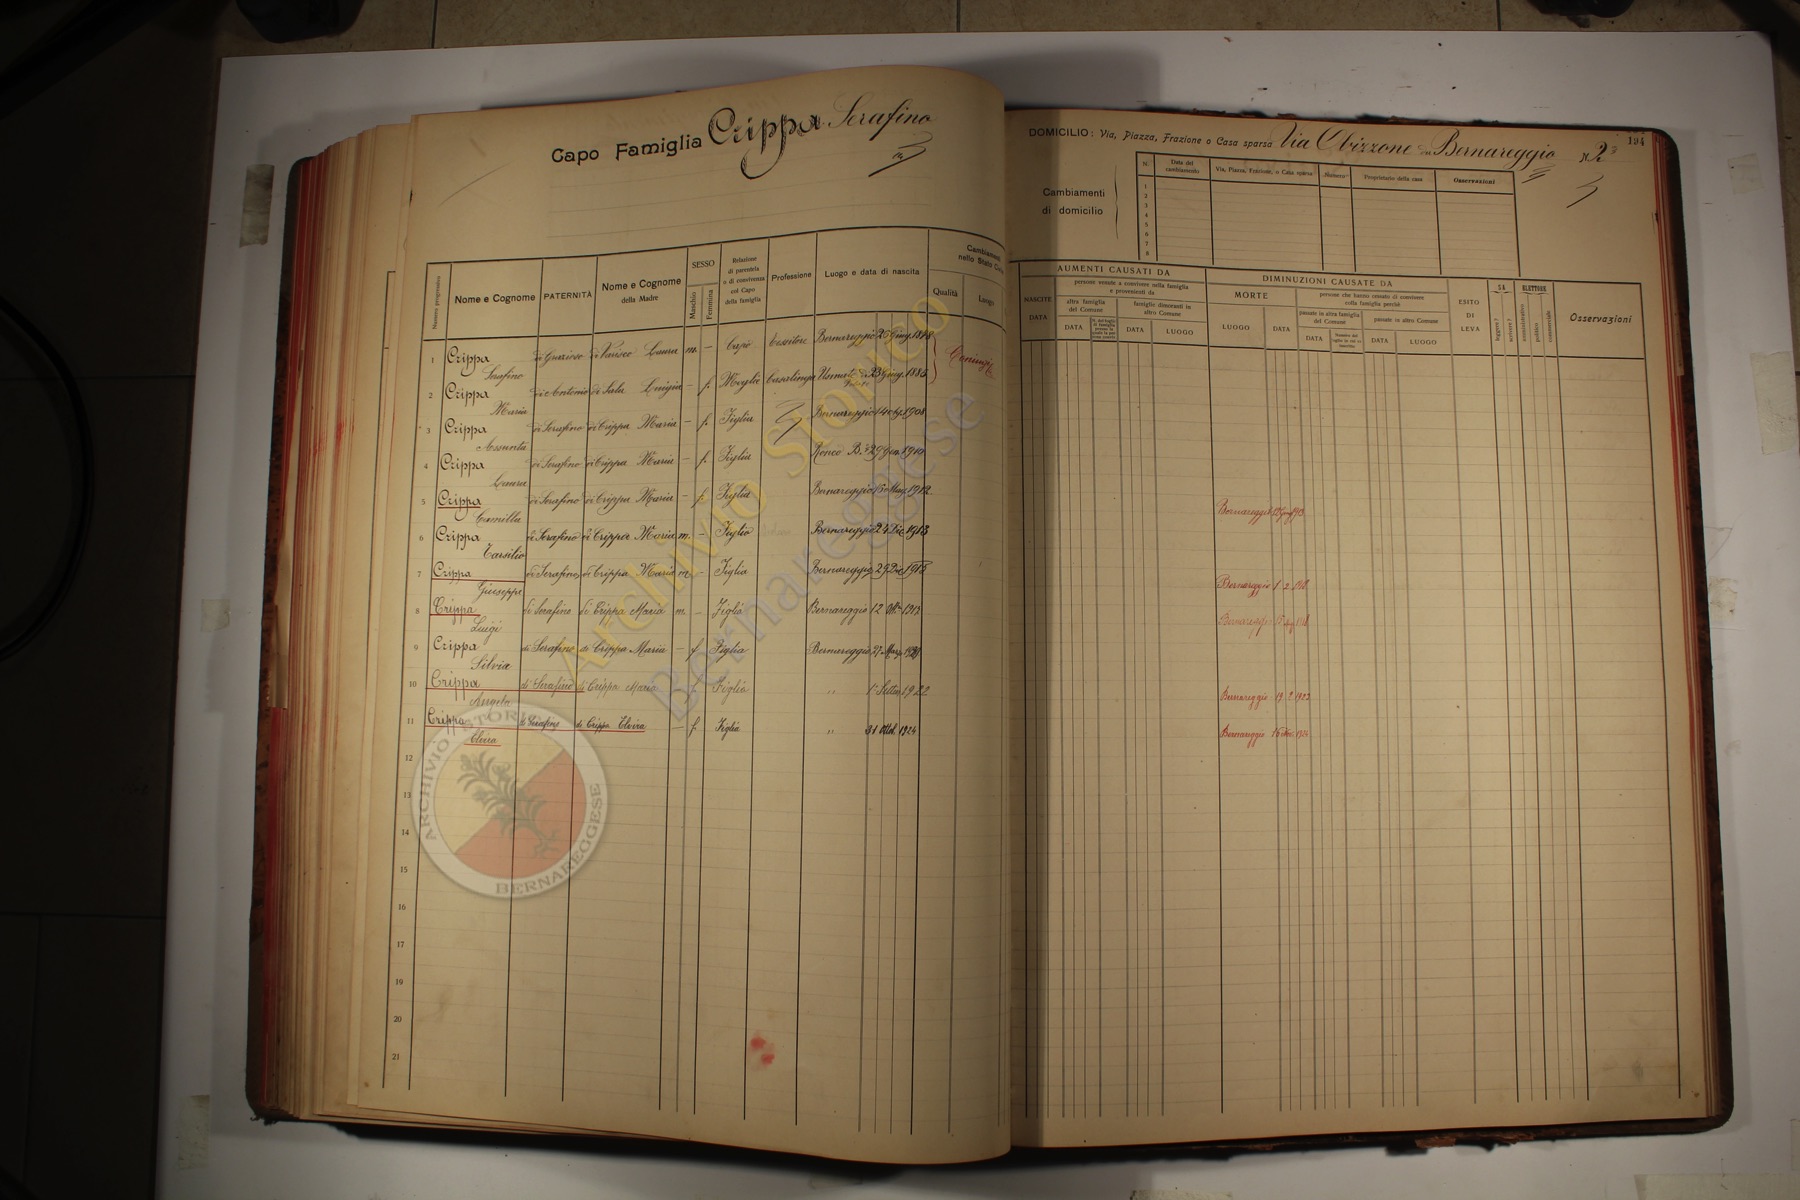 Capo Famiglia Crippa Serafino
DOMICILIO: Via, Piazza, Frazione o Casa sparsa Via Obizzone Bernareggio N. 2
194
Cambiamenti di domicilio
N. Data del cambiamento Via, Piazza, Frazione, o Casa sparsa Numero Proprietario della casa Osservazioni
1
2
3
4
5
6
7
8
Numero progressivo
Nome e Cognome
PATERNITÀ
Nome e Cognome della Madre
SESSO
Maschio
Femmina
Relazione di parentela o di convivenza col Capo della famiglia
Professione
Luogo e data di nascita
Cambiamenti nello Stato Civile
Qualità
Luogo
AUMENTI CAUSATI DA
NASCITE
DATA
persone venute a convivere nella famiglia e provenienti da
altra famiglia del Comune
DATA
famiglie dimoranti in altro Comune
DATA LUOGO
DIMINUZIONI CAUSATE DA
MORTE
LUOGO DATA
persone che hanno cessato di convivere colla famiglia perchè
passate in altra famiglia del Comune
DATA
passate in altro Comune
DATA LUOGO
ESITO DI LEVA
SA
leggere?
scrivere?
ELETTORE
amministrativo
politico
commerciale
Osservazioni
1 Crippa Serafino di Varisco Laura m. — Capo tessitore Bernareggio
2 Crippa Maria di Antonio di Sala Luigia — f. Moglie Casalinga Usmate 23 Giug. 1885
Coniugi
3 Crippa Assunta di Serafino di Crippa Maria — f. Figlia Bernareggio 1908
4 Crippa Laura di Serafino di Crippa Maria — f. Figlia Ronco B. 29 1910
5 Crippa Camilla di Serafino di Crippa Maria — f. Figlia Bernareggio 1912 Bernareggio
6 Crippa Tarsilio di Serafino di Crippa Maria m. — Figlio Bernareggio 24 Dic. 1913
7 Crippa Giuseppe di Serafino di Crippa Maria m. — Figlio Bernareggio 29 Dic. 1915 Bernareggio
8 Crippa Luigi di Serafino di Crippa Maria m. — Figlio Bernareggio 12 Bernareggio
9 Crippa Silvia di Serafino di Crippa Maria — f Figlia Bernareggio 27
10 Crippa Angela di Serafino di Crippa Maria Figlia " 1° Settem. 1922 Bernareggio 19.2.1923
11 Crippa Elvira di Serafino di Crippa Elvira — f. Figlia " 31 Ottob. 1924 Bernareggio 1924
12
13
14
15
16
17
18
19
20
21
Archivio Storico
Bernareggese
ARCHIVIO STORICO
BERNAREGGESE